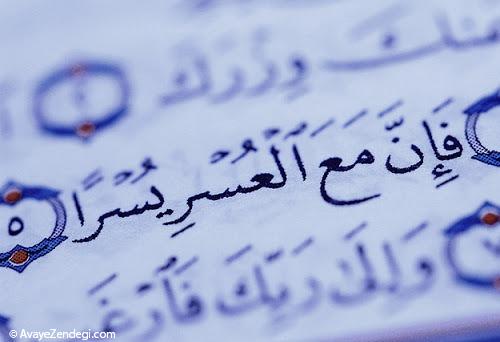 عَنكَ وِزْرَكَ ٢
فَإِنَّ مَعَ ٱلْعُسْرِ يُسْرًا ٥
وَإِلَىٰ رَبِّكَ فَٱرْغَ
© AvayeZendegi.com